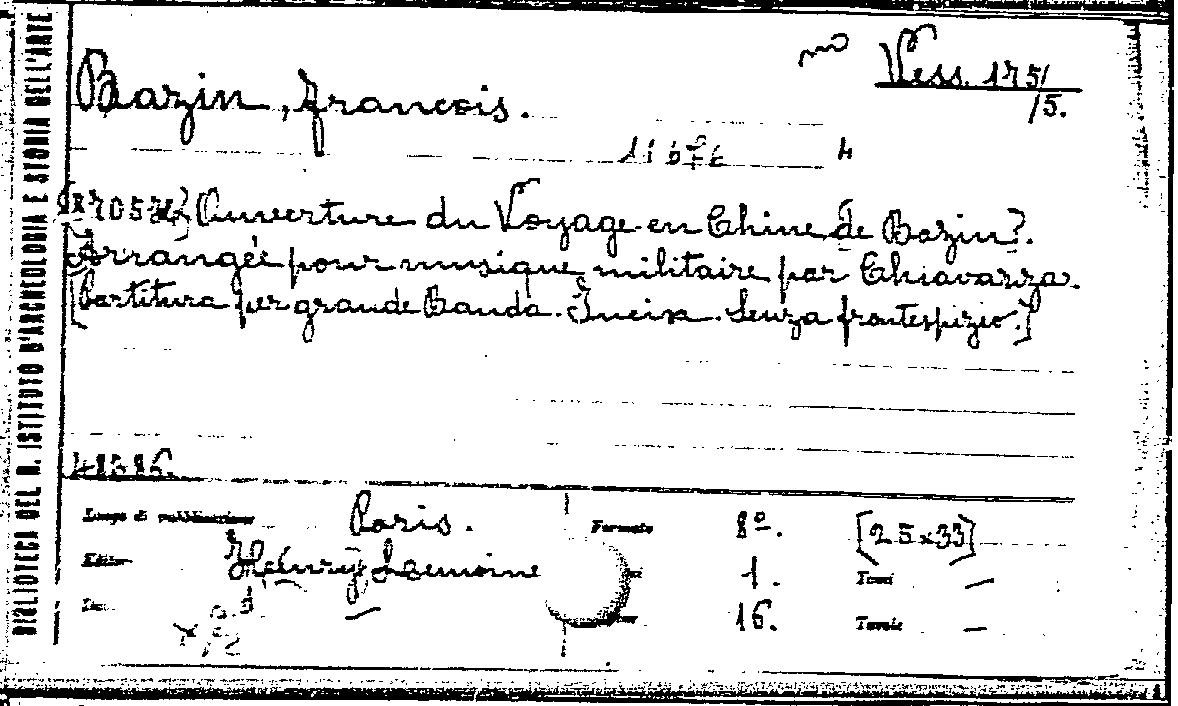 BIBLIOTECA DEL R. ISTITUTO D'ARCHEOLOGIA E STORIA DELL'ARTE
Vess. 175/
/5.
Bazin, francois.
4
Ouverture du Voyage en Chine de Bazin?.
Arrangée pour musique militaire par Chiavarza.
[Partitura per grande Banda. Incisa. Senza frontespizio.]
48316.
Luogo di pubblicazione Paris. Formato 8º. [25x33]
Editore Henry Lemoine 1. Tomi —
— 16. Tavole —